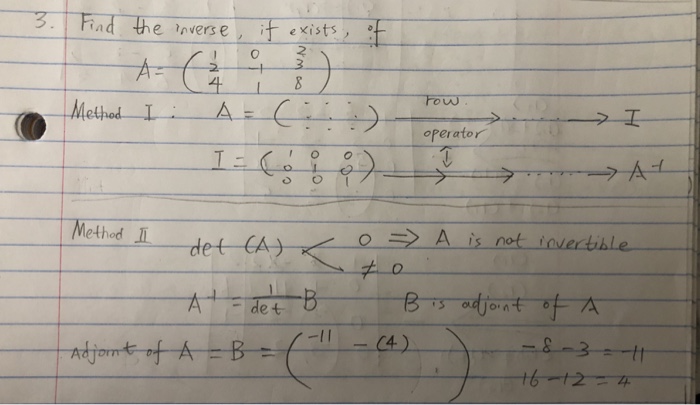 3. Find the inverse, if exists, of
A = ( 1 0 2
2 -1 3
4 1 8 )
Method I : A = ( : : : ) row operator → → ...... → I
I = ( 1 0 0
0 1 0
0 0 1 ) ↕ → → ...... → A⁻¹
Method II
det (A) < 0 ⇒ A is not invertible
≠ 0
A⁻¹ = 1/det B B is adjoint of A
Adjoint of A = B = ( -11 - (4) ) -8 - 3 = -11
16 - 12 = 4